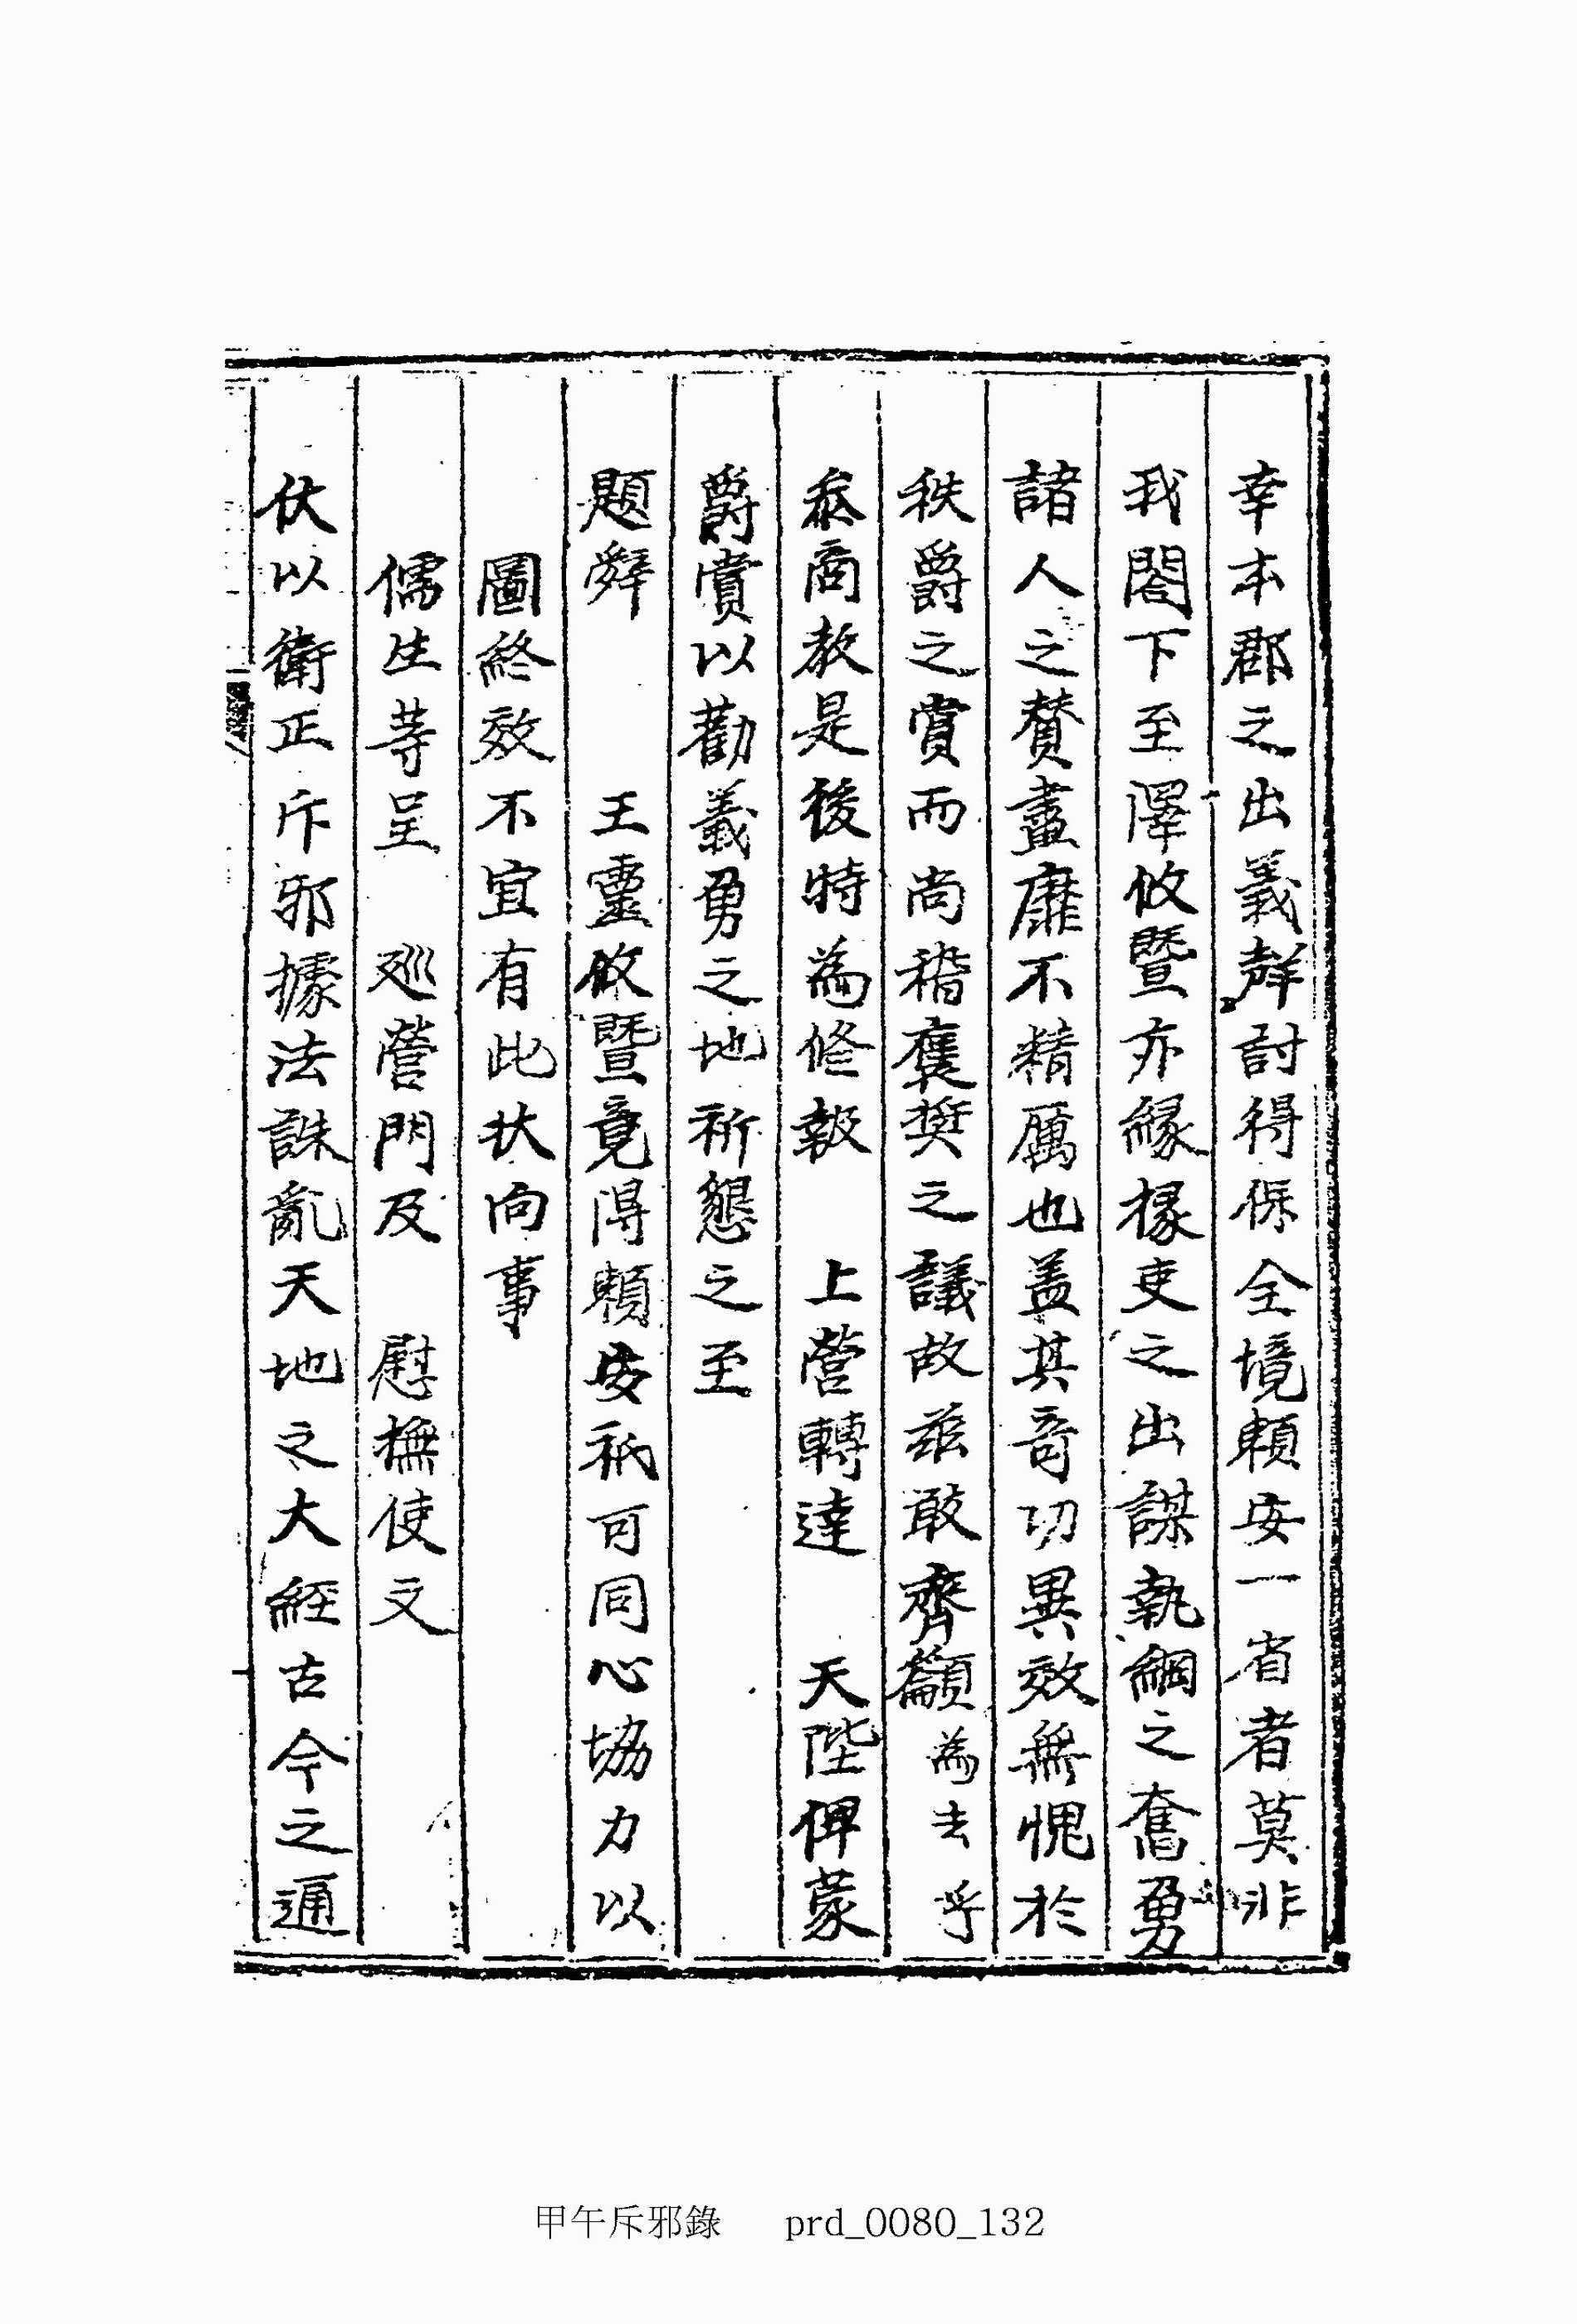 幸本郡之出義聲討得保全境賴安一省者莫非
我閤下至澤攸曁亦緣掾吏之出謀執綱之奮勇
諸人之贊盡靡不精厲也盖其奇功異效無愧於
秩爵之賞而尚稽褒奬之議故玆敢齊籲為去乎
叅商敎是後特為修報 上營轉達 天陛俾蒙
爵賞以勸義勇之地祈懇之至
題辭 王靈攸曁竟得賴安祇可同心協力以
圖終效不宜有此狀向事
儒生䓁呈 廵營門及 慰撫使文
伏以衛正斥邪據法誅亂天地之大經古今之通
甲午斥邪錄 prd_0080_132